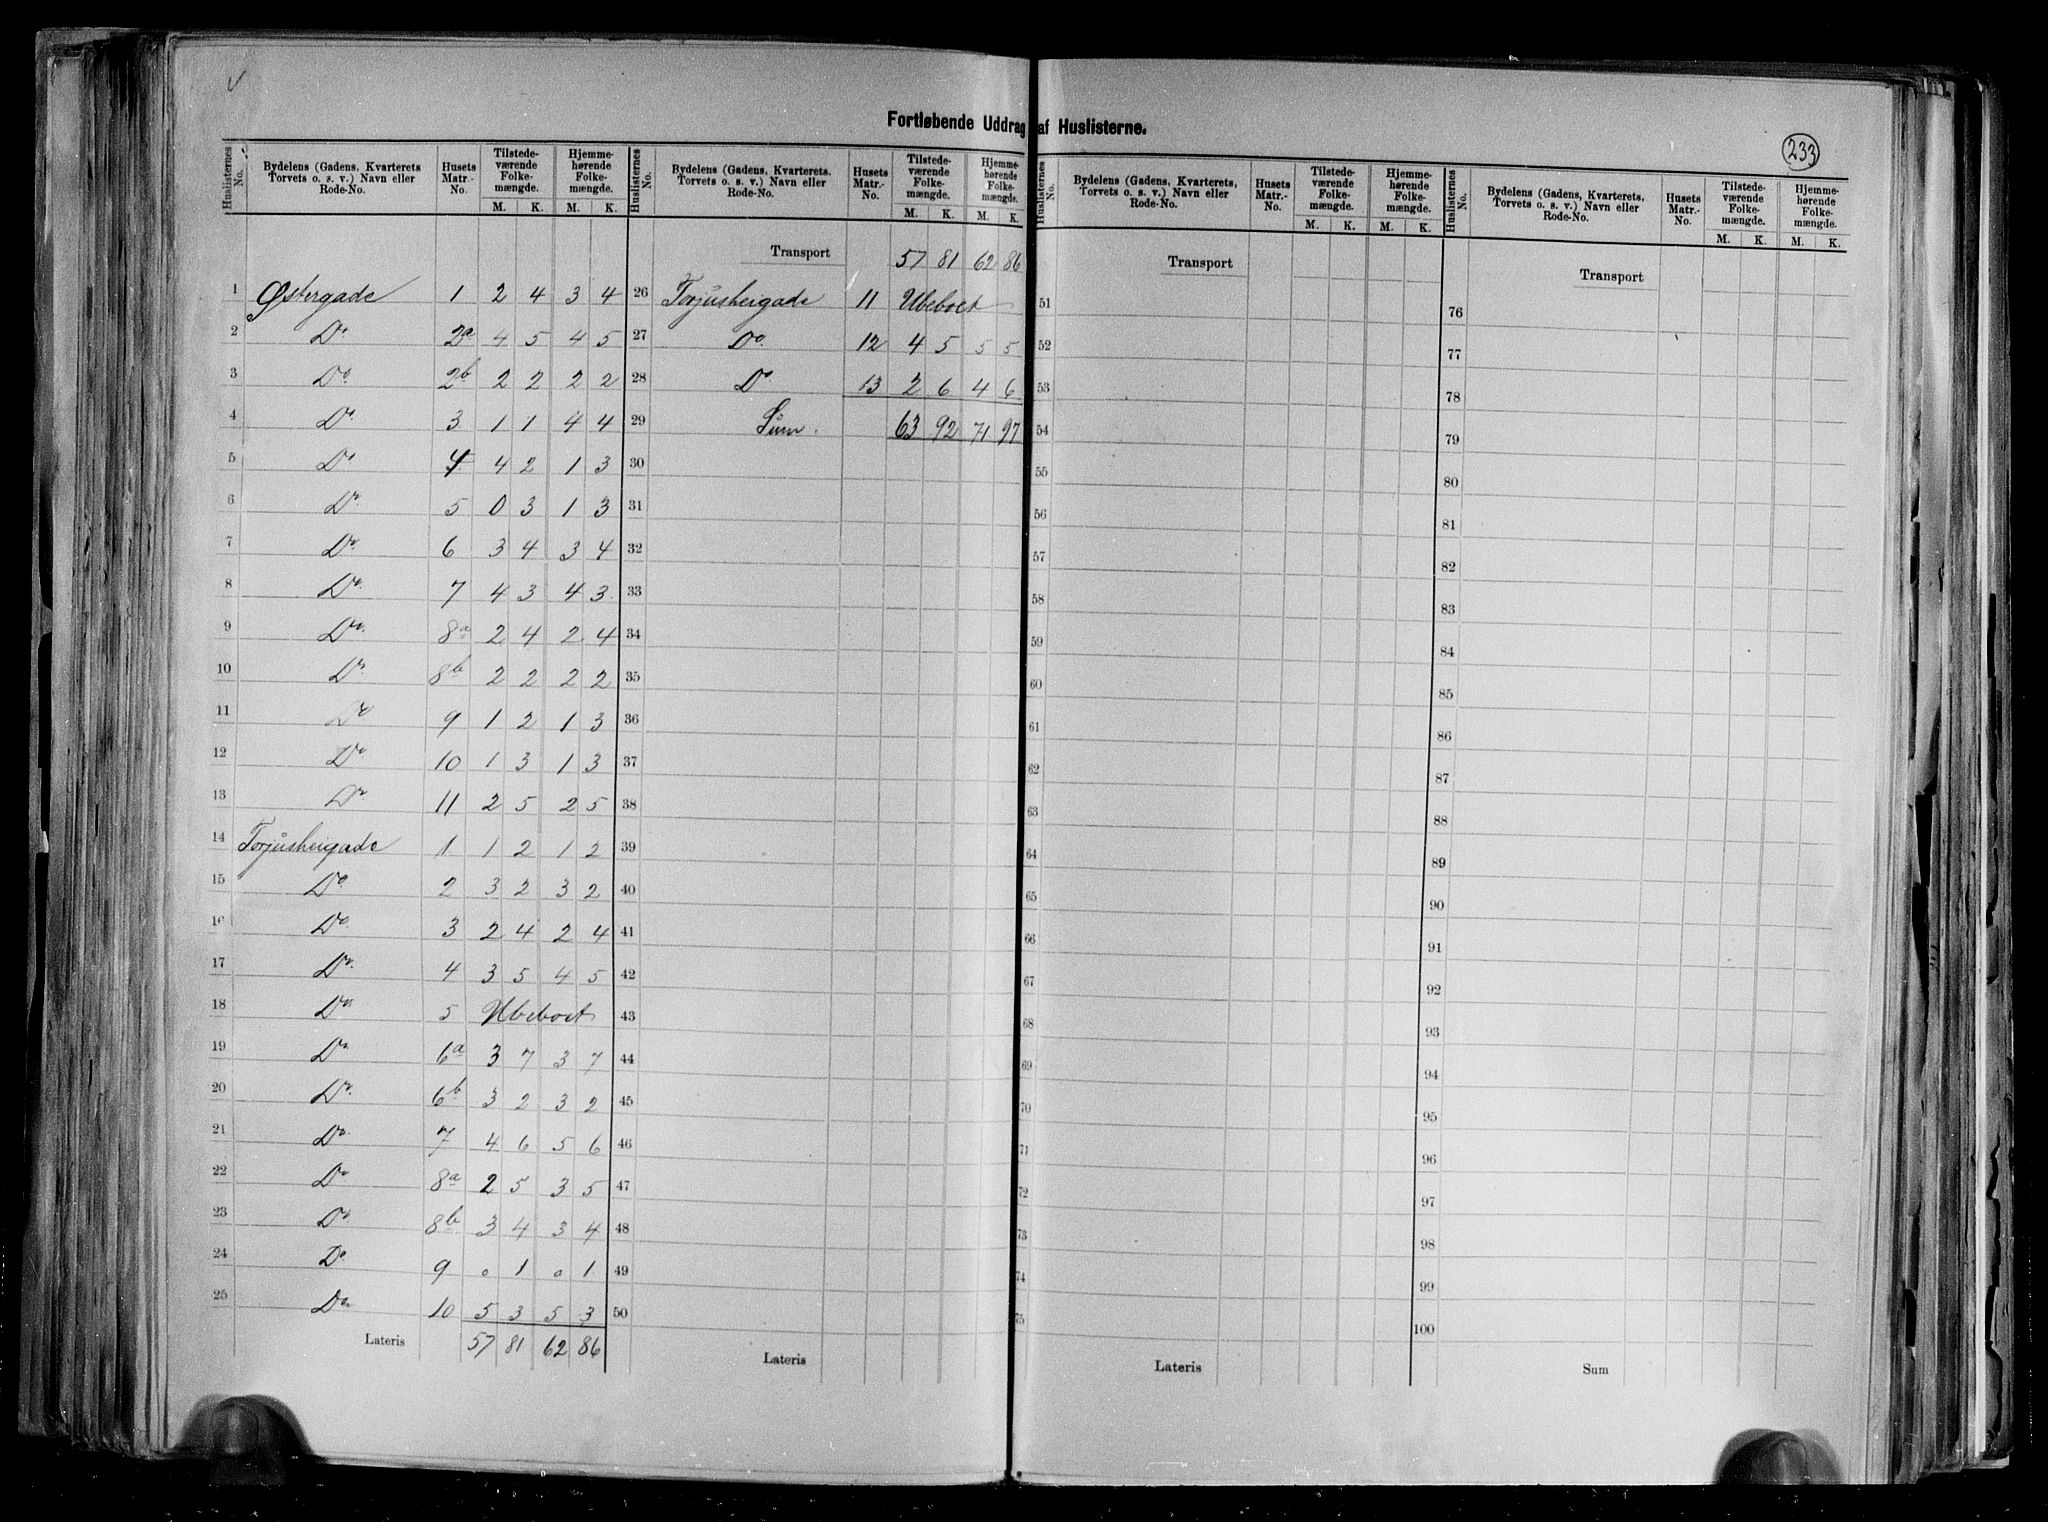 Fortløbende Uddrag af Huslisterne.
233
Huslisternes No. Bydelens (Gadens, Kvarterets Torvets o. s. v.) Navn eller Rode-No. Husets Matr.-No. Tilstedeværende Folkemængde. M. K. Hjemmehørende Folkemængde. M. K.
1 Østergade 1 2 4 3 4
2 Do. 2a 4 5 4 5
3 Do. 2b 2 2 2 2
4 Do. 3 1 1 4 4
5 Do. 4 4 2 1 3
6 Do. 5 0 3 1 3
7 Do. 6 3 4 3 4
8 Do. 7 4 3 4 3
9 Do. 8a 2 4 2 4
10 Do. 8b 2 2 2 2
11 Do 9 1 2 1 3
12 Do. 10 1 3 1 3
13 Do. 11 2 5 2 5
14 Torjusheigade 1 1 2 1 2
15 Do. 2 3 2 3 2
16 Do. 3 2 4 2 4
17 Do. 4 3 5 4 5
18 Do. 5 Ubeboet
19 Do. 6a 3 7 3 7
20 Do. 6b 3 2 3 2
21 Do. 7 4 6 5 6
22 Do. 8a 2 5 3 5
23 Do. 8b 3 4 3 4
24 Do. 9 0 1 0 1
25 Do. 10 5 3 5 3
Lateris 57 81 62 86
Huslisternes No. Bydelens (Gadens, Kvarterets, Torvets o. s. v.) Navn eller Rode-No. Husets Matr.-No. Tilstedeværende Folkemængde. M. K. Hjemmehørende Folkemængde. M. K.
Transport 57 81 62 86
26 Torjusheigade 11 Ubeboet
27 Do. 12 4 5 5 5
28 Do. 13 2 6 4 6
29 Sum. 63 92 71 97
30
31
32
33
34
35
36
37
38
39
40
41
42
43
44
45
46
47
48
49
50
Lateris
Huslisternes No. Bydelens (Gadens, Kvarterets, Torvets o. s. v.) Navn eller Rode-No. Husets Matr.-No. Tilstedeværende Folkemængde. M. K. Hjemmehørende Folkemængde. M. K.
Transport
51
52
53
54
55
56
57
58
59
60
61
62
63
64
65
66
67
68
69
70
71
72
73
74
75
Lateris
Huslisternes No. Bydelens (Gadens, Kvarterets, Torvets o. s. v.) Navn eller Rode-No. Husets Matr.-No. Tilstedeværende Folkemængde. M. K. Hjemmehørende Folkemængde. M. K.
Transport
76
77
78
79
80
81
82
83
84
85
86
87
88
89
90
91
92
93
94
95
96
97
98
99
100
Sum